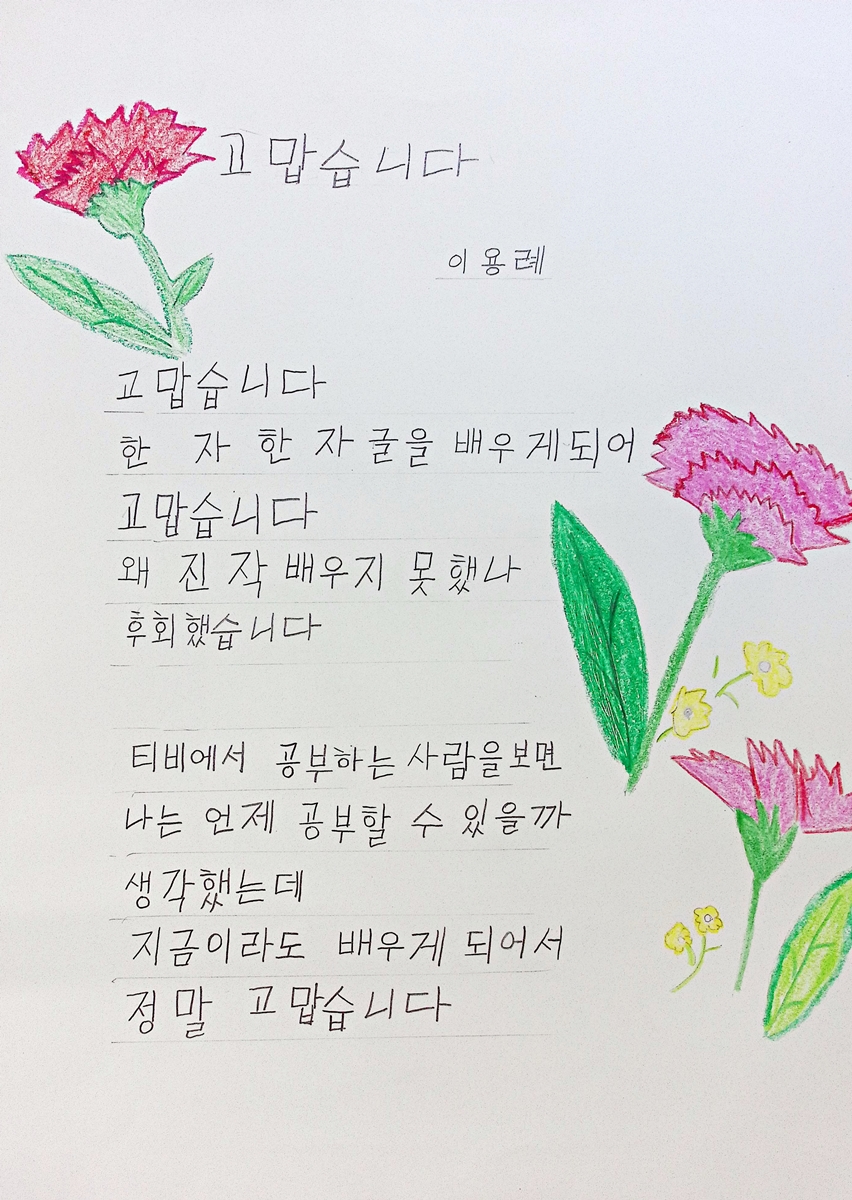 고맙습니다
이용례
고맙습니다
한 자 한 자 글을 배우게되어
고맙습니다
왜 진 작 배우지 못했나
후회했습니다
티비에서 공부하는 사람을보면
나는 언제 공부할 수 있을까
생각했는데
지금이라도 배우게 되어서
정말 고맙습니다